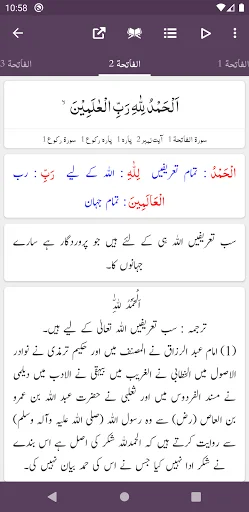 10:58
الفَاتِحة 3
الفَاتِحة 2
الفَاتِحة 1
اَلْحَمْدُ لِلّٰهِ رَبِّ الْعٰلَمِيْنَ
سورة الفاتحة 1 آیت نمبر 2 پارہ 1 پارہ رکوع 1 سورۃ رکوع 1
الْحَمْدُ : تمام تعریفیں لِلّٰهِ : اللہ کے لیے رَبِّ : رب
الْعَالَمِينَ : تمام جہان
سب تعریفیں اللہ ہی کے لئے ہیں جو پروردگار ہے سارے
جہانوں کا۔
اَلْحَمْدُ لِلّٰهِ
ترجمہ : سب تعریفیں اللہ تعالیٰ کے لیے ہیں۔
(1) امام عبد الرزاق نے المصنف میں اور حکیم ترمذی نے نوادر
الاصول میں الخطابی نے الغریب میں بیہقی نے الادب میں دیلمی
نے مسند الفردوس میں اور ثعلبی نے حضرت عبد اللہ بن عمرو
بن العاص (رض) سے وہ رسول اللہ (صلی اللہ علیہ وآلہ وسلم)
سے روایت کرتے ہیں کہ الحمدللہ شکر کی اصل ہے اس بندے
نے شکر ادا نہیں کیا جس نے اس کی حمد بیان نہیں کی۔